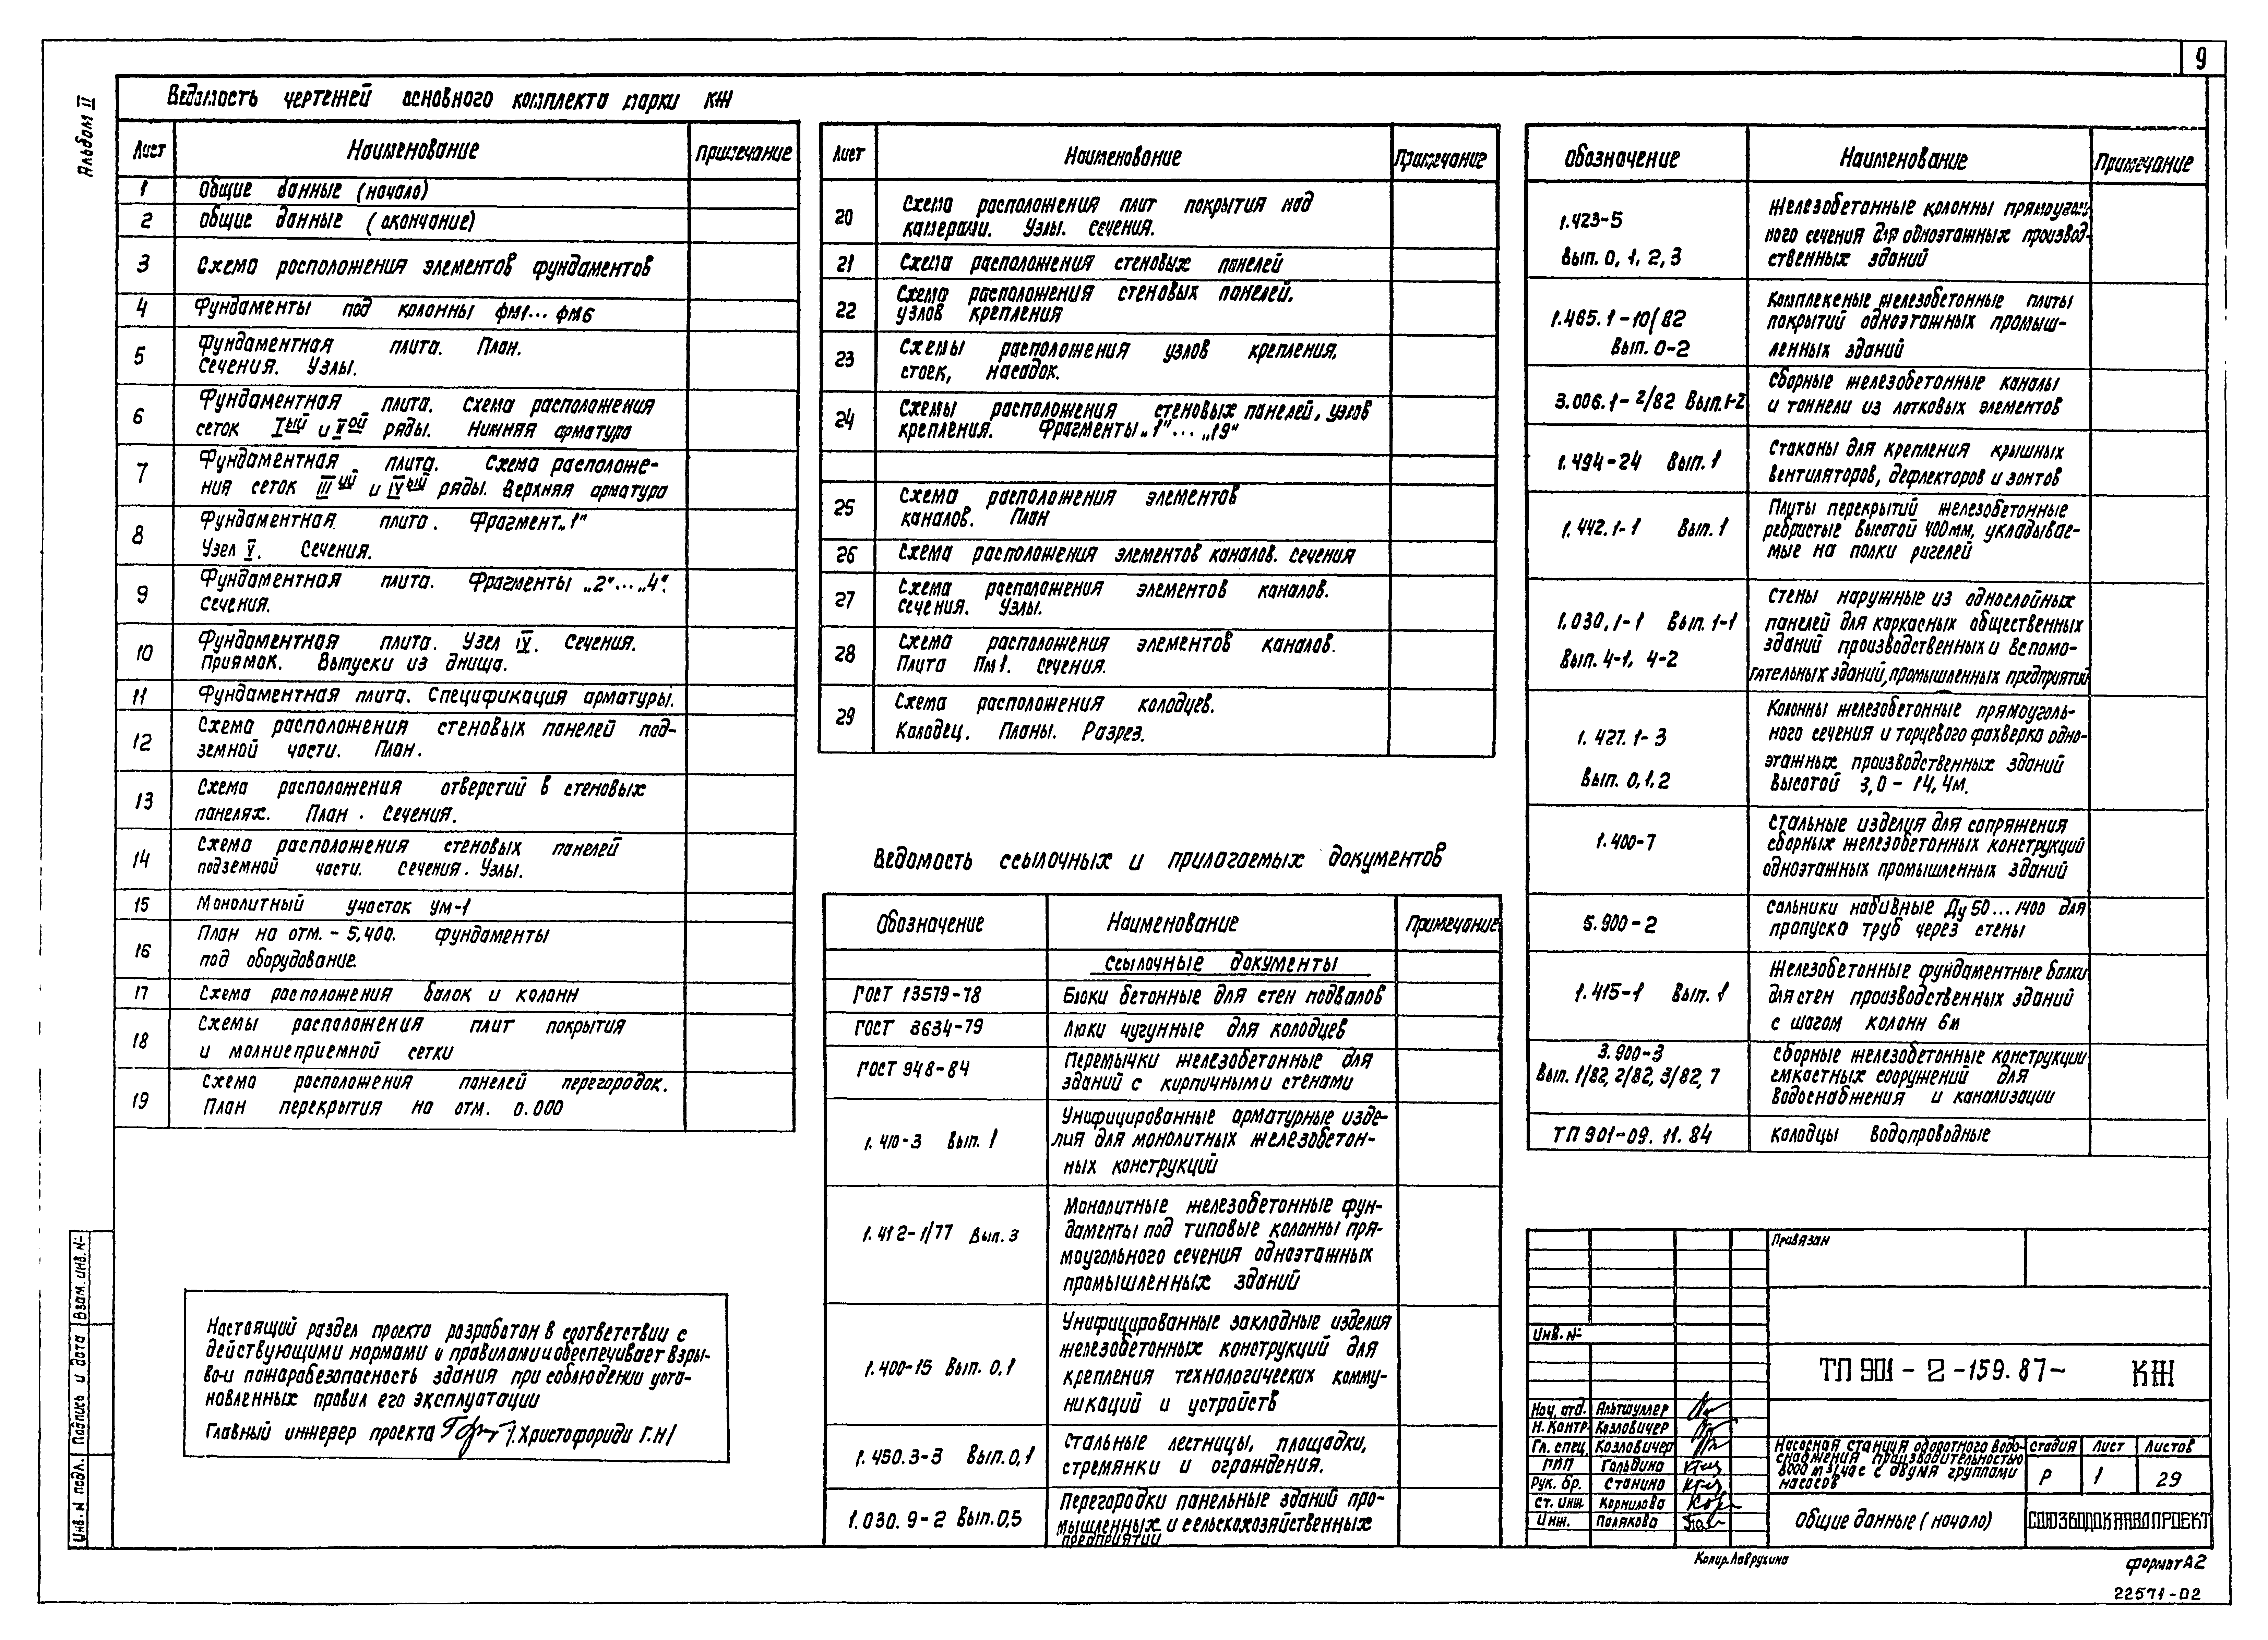 9
Альбом II
Ведомость чертежей основного комплекта марки КЖ
Лист Наименование Примечание
1 Общие данные (начало)
2 Общие данные (окончание)
3 Схема расположения элементов фундаментов
4 Фундаменты под колонны ФМ1... ФМ6
5 Фундаментная плита. План.
Сечения. Узлы.
6 Фундаментная плита. Схема расположения
сеток Iый и IIой ряды. Нижняя арматура
7 Фундаментная плита. Схема расположе-
ния сеток IIIий и IVый ряды. Верхняя арматура
8 Фундаментная плита. Фрагмент „1"
Узел V. Сечения.
9 Фундаментная плита. Фрагменты „2"...„4".
Сечения.
10 Фундаментная плита. Узел IV. Сечения.
Приямок. Выпуски из днища.
11 Фундаментная плита. Спецификация арматуры.
12 Схема расположения стеновых панелей под-
земной части. План.
13 Схема расположения отверстий в стеновых
панелях. План. Сечения.
14 Схема расположения стеновых панелей
подземной части. Сечения. Узлы.
15 Монолитный участок УМ-1
16 План на отм. - 5,400. Фундаменты
под оборудование.
17 Схема расположения балок и колонн
18 Схемы расположения плит покрытия
и молниеприемной сетки
19 Схема расположения панелей перегородок.
План перекрытия на отм. 0.000
Лист Наименование Примечание
20 Схема расположения плит покрытия над
камерами. Узлы. Сечения.
21 Схема расположения стеновых панелей
22 Схема расположения стеновых панелей.
узлов крепления
23 Схемы расположения узлов крепления,
стоек, насадок.
24 Схемы расположения стеновых панелей, узлов
крепления. Фрагменты „1"... „19"
25 Схема расположения элементов
каналов. План
26 Схема расположения элементов каналов. Сечения
27 Схема расположения элементов каналов.
Сечения. Узлы.
28 Схема расположения элементов каналов.
Плита Пм1. Сечения.
29 Схема расположения колодцев.
Колодец. Планы. Разрез.
Ведомость ссылочных и прилагаемых документов
Обозначение Наименование Примечание
Ссылочные документы
ГОСТ 13579-78 Блоки бетонные для стен подвалов
ГОСТ 3634-79 Люки чугунные для колодцев
ГОСТ 948-84 Перемычки железобетонные для
зданий с кирпичными стенами
1.410-3 Вып. 1 Унифицированные арматурные изде-
лия для монолитных железобетон-
ных конструкций
1.412-1/77 Вып. 3 Монолитные железобетонные фун-
даменты под типовые колонны пря-
моугольного сечения одноэтажных
промышленных зданий
1.400-15 Вып. 0,1 Унифицированные закладные изделия
железобетонных конструкций для
крепления технологических комму-
никаций и устройств
1.450.3-3 Вып.0,1 Стальные лестницы, площадки,
стремянки и ограждения.
1.030.9-2 Вып.0,5 Перегородки панельные зданий про-
мышленных и сельскохозяйственных
предприятий
Обозначение Наименование Примечание
1.423-5 Вып. 0, 1, 2, 3 Железобетонные колонны прямоуголь
ного сечения для одноэтажных производ-
ственных зданий
1.465.1-10/82 Вып. 0-2 Комплексные железобетонные плиты
покрытий одноэтажных промыш-
ленных зданий
3.006.1-2/82 Вып.1-2 Сборные железобетонные каналы
и тоннели из лотковых элементов
1.494-24 Вып. 1 Стаканы для крепления крышных
вентиляторов, дефлекторов и зонтов
1.442.1-1 Вып. 1 Плиты перекрытий железобетонные
ребристые высотой 400мм, укладывае-
мые на полки ригелей
1.030.1-1 Вып. 1-1 Вып. 4-1, 4-2 Стены наружные из однослойных
панелей для каркасных общественных
зданий производственных и вспомо-
гательных зданий, промышленных предприятий
1.427.1-3 Вып. 0,1,2 Колонны железобетонные прямоуголь-
ного сечения и торцевого фахверка одно-
этажных производственных зданий
высотой 3,0 - 14,4м.
1.400-7 Стальные изделия для сопряжения
сборных железобетонных конструкций
одноэтажных промышленных зданий
5.900-2 Сальники набивные Ду 50...1400 для
пропуска труб через стены
1.415-1 Вып. 1 Железобетонные фундаментные балки
для стен производственных зданий
с шагом колонн 6м
3.900-3 Вып. 1/82, 2/82, 3/82, 7 Сборные железобетонные конструкции
емкостных сооружений для
водоснабжения и канализации
ТП 901-09. 11. 84 Колодцы водопроводные
Настоящий раздел проекта разработан в соответствии с
действующими нормами и правилами и обеспечивает взры-
во-и пожаробезопасность здания при соблюдении уста-
новленных правил его эксплуатации
Главный инженер проекта Христофориди Г.Н/
Взам. инв. №
Подпись и дата
Инв. № подл.
Привязан
Инв. №
ТП 901-2-159.87- КЖ
Нач. отд. Альтшуллер
Н. контр. Козловичер
Гл. спец. Козловичер
ГИП Гольдина
Рук. бр. Станина
Ст. инж. Корнилова
Инж. Полякова
Насосная станция оборотного водо-
снабжения производительностью
8000 м3/час с двумя группами
насосов
Стадия Лист Листов
Р 1 29
Общие данные (начало)
СОЮЗВОДОКАНАЛПРОЕКТ
Копир. Лаврухина
формат А2
22571-02